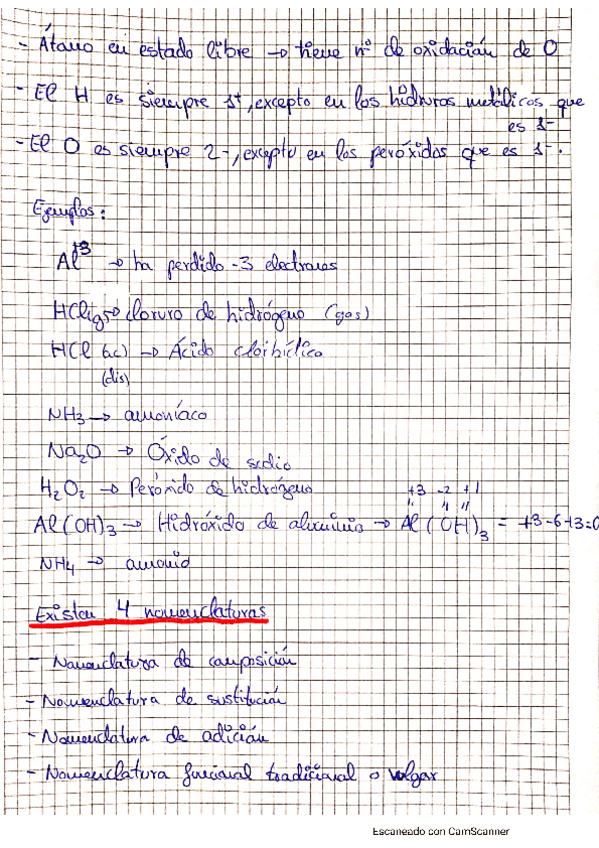 - Átomo en estado libre → tiene nº de oxidación de 0
- El H es siempre 1+, excepto en los hidruros metálicos que
es 1-
- El O es siempre 2-, excepto en los peróxidos que es 1-.
Ejemplos:
Al+3 → ha perdido -3 electrones
HCl(g) → cloruro de hidrógeno (gas)
HCl (ac) → Ácido clorhídrico
(dis)
NH3 → amoníaco
Na2O → Óxido de sodio
H2O2 → Peróxido de hidrógeno
+3 -2 +1
Al(OH)3 → Hidróxido de aluminio → Al(OH)3 = +3-6+3=0
NH4 → amonio
Existen 4 nomenclaturas
- Nomenclatura de composición
- Nomenclatura de sustitución
- Nomenclatura de adición
- Nomenclatura funcional tradicional o vulgar
Escaneado con CamScanner